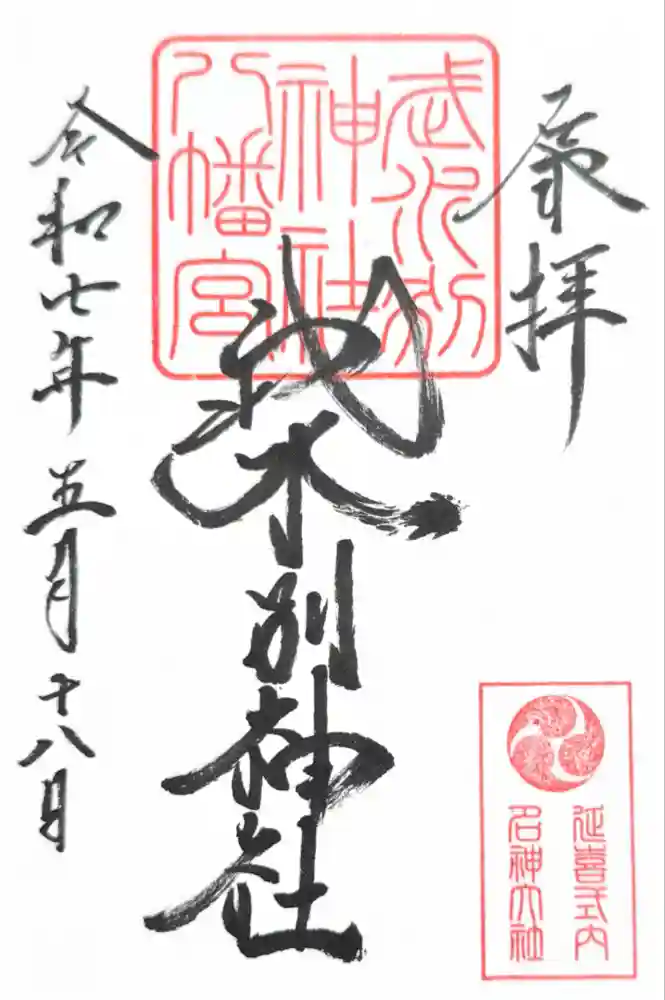 奉拝
武水別
神社
八幡宮
武水別神社
令和七年五月十八日
延喜式内
名神大社